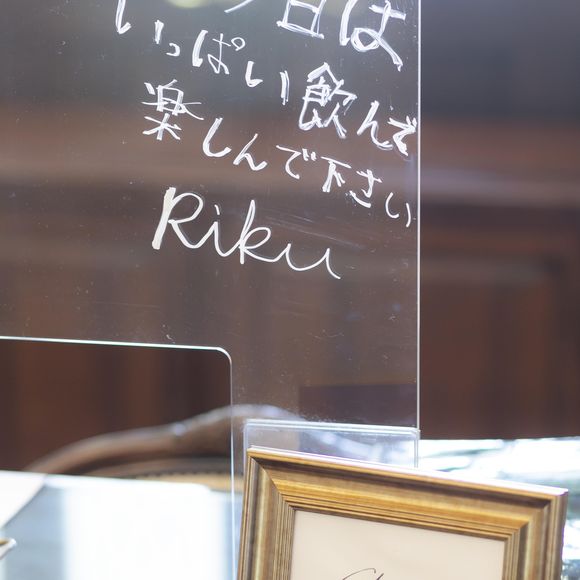 今日は
いっぱい飲んで
楽しんで下さい
Riku